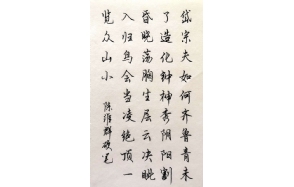 岱宗夫如何齐鲁青未
了造化钟神秀阴阳割
昏晓荡胸生层云决眦
入归鸟会当凌绝顶一
览众山小
陈硬笔